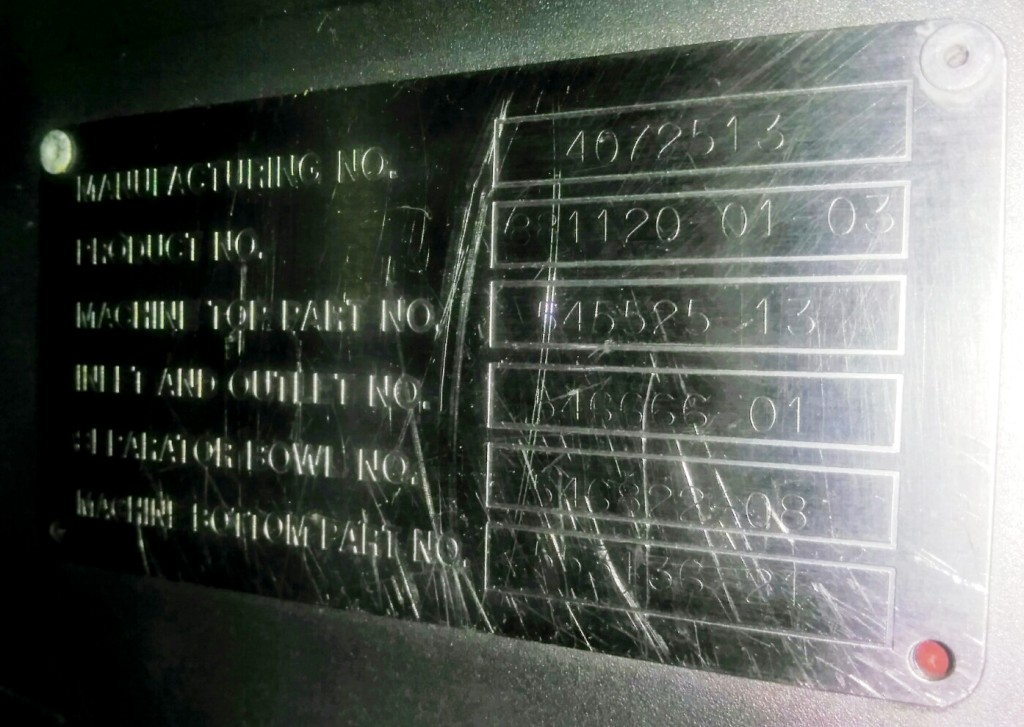 MANUFACTURING NO. 4072513
PRODUCT NO. 881120 01 03
MACHINE TOP PART NO. 545525 13
INLET AND OUTLET NO. 546666 01
SEPARATOR BOWL NO. 546822 08
MACHINE BOTTOM PART NO. 21